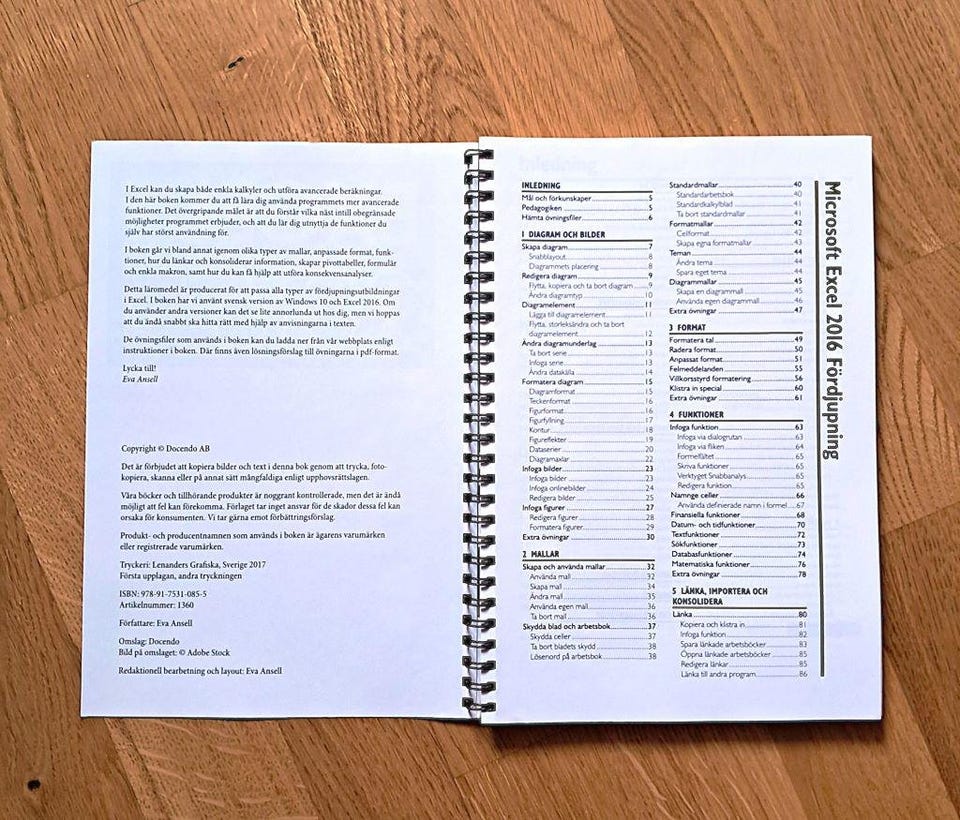 I Excel kan du skapa både enkla kalkyler och utföra avancerade beräkningar.
I den här boken kommer du att få lära dig använda programmets mer avancerade
funktioner. Det övergripande målet är att du förstår vilka näst intill obegränsade
möjligheter programmet erbjuder, och att du lär dig utnyttja de funktioner du
själv har störst användning för.
I boken går vi bland annat igenom olika typer av mallar, anpassade format, funk-
tioner, hur du länkar och konsoliderar information, skapar pivottabeller, formulär
och enkla makron, samt hur du kan få hjälp att utföra konsekvensanalyser.
Detta läromedel är producerat för att passa alla typer av fördjupningsutbildningar
i Excel. I boken har vi använt svensk version av Windows 10 och Excel 2016. Om
du använder andra versioner kan det se lite annorlunda ut hos dig, men vi hoppas
att du ändå snabbt ska hitta rätt med hjälp av anvisningarna i texten.
De övningsfiler som används i boken kan du ladda ner från vår webbplats enligt
instruktioner i boken. Där finns även lösningsförslag till övningarna i pdf-format.
Lycka till!
Eva Ansell
Copyright © Docendo AB
Det är förbjudet att kopiera bilder och text i denna bok genom att trycka, foto-
kopiera, skanna eller på annat sätt mångfaldiga enligt upphovsrättslagen.
Våra böcker och tillhörande produkter är noggrant kontrollerade, men det är ändå
möjligt att fel kan förekomma. Förlaget tar inget ansvar för de skador dessa fel kan
orsaka för konsumenten. Vi tar gärna emot förbättringsförslag.
Produkt- och producentnamnen som används i boken är ägarens varumärken
eller registrerade varumärken.
Tryckeri: Lenanders Grafiska, Sverige 2017
Första upplagan, andra tryckningen
ISBN: 978-91-7531-085-5
Artikelnummer: 1360
Författare: Eva Ansell
Omslag: Docendo
Bild på omslaget: © Adobe Stock
Redaktionell bearbetning och layout: Eva Ansell
INLEDNING
Mål och förkunskaper 5
Pedagogiken 5
Hämta övningsfiler 6
1 DIAGRAM OCH BILDER
Skapa diagram 7
Snabblayout 8
Diagrammets placering 8
Redigera diagram 9
Flytta, kopiera och ta bort diagram 9
Ändra diagramtyp 10
Diagramelement 11
Lägga till diagramelement 11
Flytta, storleksändra och ta bort
diagramelement 12
Ändra diagramunderlag 13
Ta bort serie 13
Infoga serie 13
Ändra datakälla 14
Formatera diagram 15
Diagramformat 15
Teckenformat 16
Figurformat 16
Figurfyllning 17
Kontur 18
Figureffekter 19
Dataserier 20
Diagramaxlar 22
Infoga bilder 23
Infoga bilder 23
Infoga onlinebilder 24
Redigera bilder 25
Infoga figurer 27
Redigera figurer 28
Formatera figurer 29
Extra övningar 30
2 MALLAR
Skapa och använda mallar 32
Använda mall 32
Skapa mall 34
Ändra mall 35
Använda egen mall 36
Ta bort mall 36
Skydda blad och arbetsbok 37
Skydda celler 37
Ta bort bladets skydd 38
Lösenord på arbetsbok 38
Standardmallar 40
Standardarbetsbok 40
Standardkalkylblad 41
Ta bort standardmallar 41
Formatmallar 42
Cellformat 42
Skapa egna formatmallar 43
Teman 44
Ändra tema 44
Spara eget tema 44
Diagrammallar 45
Skapa en diagrammall 45
Använda egen diagrammall 46
Extra övningar 47
3 FORMAT
Formatera tal 49
Radera format 50
Anpassat format 51
Felmeddelanden 55
Villkorsstyrd formatering 56
Klistra in special 60
Extra övningar 61
4 FUNKTIONER
Infoga funktion 63
Infoga via dialogrutan 63
Infoga via fliken 64
Formelfältet 65
Skriva funktioner 65
Verktyget Snabbanalys 65
Redigera funktion 65
Namnge celler 66
Använda definierade namn i formel 67
Finansiella funktioner 68
Datum- och tidfunktioner 70
Textfunktioner 72
Sökfunktioner 73
Databasfunktioner 74
Matematiska funktioner 76
Extra övningar 78
5 LÄNKA, IMPORTERA OCH
KONSOLIDERA
Länka 80
Kopiera och klistra in 81
Infoga funktion 82
Spara länkade arbetsböcker 83
Öppna länkade arbetsböcker 85
Redigera länkar 85
Länka till andra program 86
Microsoft Excel 2016 Fördjupning